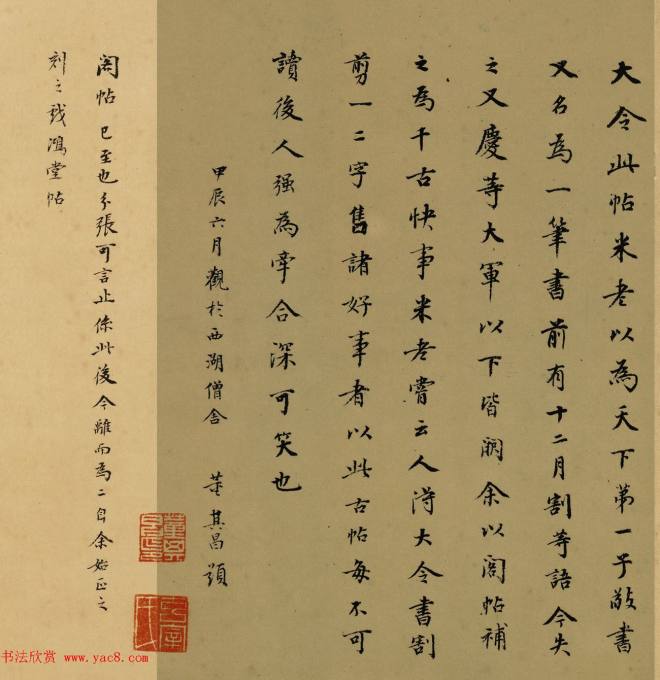 大令此帖米老以為天下第一子敬書
又名為一筆書前有十二月割等語今失
之又慶等大軍以下皆闕余以閣帖補
之為千古快事米老嘗云人得大令書割
剪一二字售諸好事者以此古帖每不可
讀後人强為牽合深可笑也
甲辰六月觀於西湖僧舍 董其昌題
閣帖 已至也分張可言止係此後今離而為二自余始正之
刻之戲鴻堂帖
书法欣赏 www.yac8.com